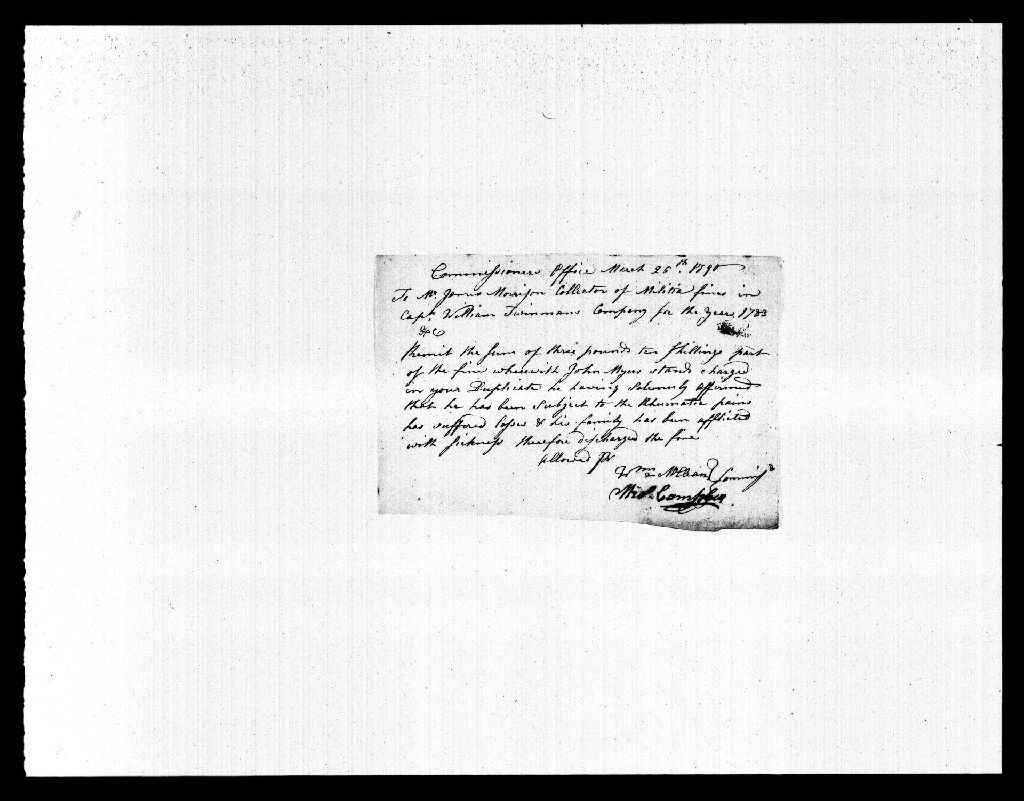 Commissioners Office March 25th. 1790
To Mr. James Morrison Collector of Militia fines in
Capt. William Company for the year 1783
&c
Remit the Sum of three pounds ten Shillings part
of the fine wherewith John Myers stands charged
in your Duplicate he having Solemnly affirmed
that he has been Subject to the Rhumatic pains
has suffered losses & his family has been afflicted
with Sickness therefore discharged the fine
allowed pr
Wm. McClean Commisrs
Campbell